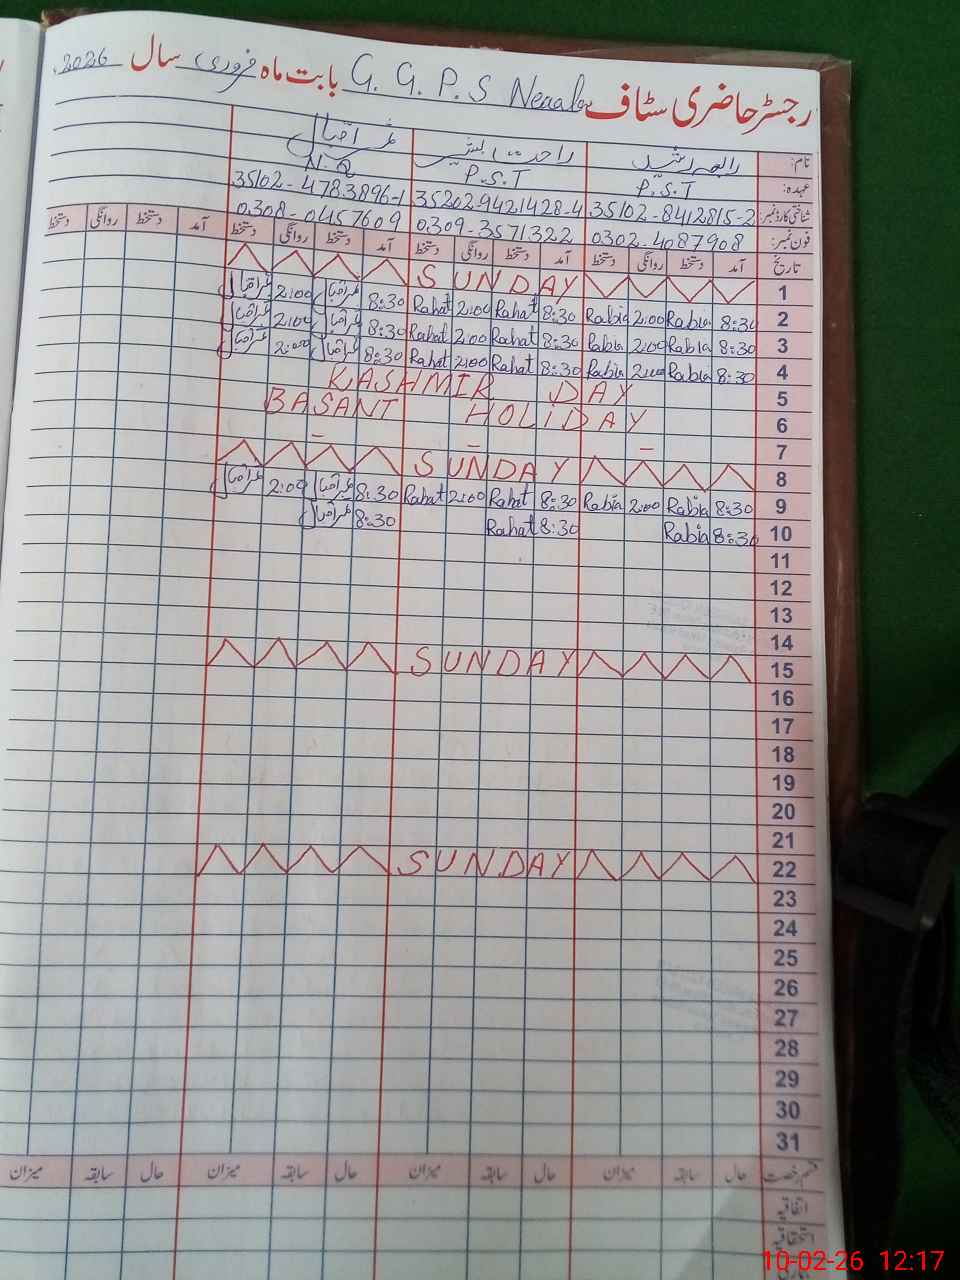 رجسٹر حاضری سٹاف G. G. P. S بابت ماہ فروری سال 2026
نام: رابعہ راحت عمر اقبال
عہدہ: P.S.T P.S.T N.Q
شناختی کارڈ نمبر: 35102-8412815-2 35202-9421428-4 35102-4783896-1
فون نمبر: 0302-4087908 0309-3571322 0308-0457609
تاریخ آمد دستخط روانگی دستخط آمد دستخط روانگی دستخط آمد دستخط روانگی دستخط دستخط روانگی دستخط
1 SUNDAY
2 8:30 Rabia 2:00 Rabia 8:30 Rahat 2:00 Rahat 8:30 عمر اقبال 2:00 عمر اقبال
3 8:30 Rabia 2:00 Rabia 8:30 Rahat 2:00 Rahat 8:30 عمر اقبال 2:00 عمر اقبال
4 8:30 Rabia 2:00 Rabia 8:30 Rahat 2:00 Rahat 8:30 عمر اقبال 2:00 عمر اقبال
5 KASHMIR DAY
6 BASANT HOLIDAY
7 - - -
8 SUNDAY
9 8:30 Rabia 2:00 Rabia 8:30 Rahat 2:00 Rahat 8:30 عمر اقبال 2:00 عمر اقبال
10 8:30 Rabia 8:30 Rahat 8:30 عمر اقبال
11
12
13
14
15 SUNDAY
16
17
18
19
20
21
22 SUNDAY
23
24
25
26
27
28
29
30
31
قسم رخصت حال سابقہ میزان حال سابقہ میزان حال سابقہ میزان حال سابقہ میزان
اتفاقیہ
استحقاقیہ
10-02-26 12:17